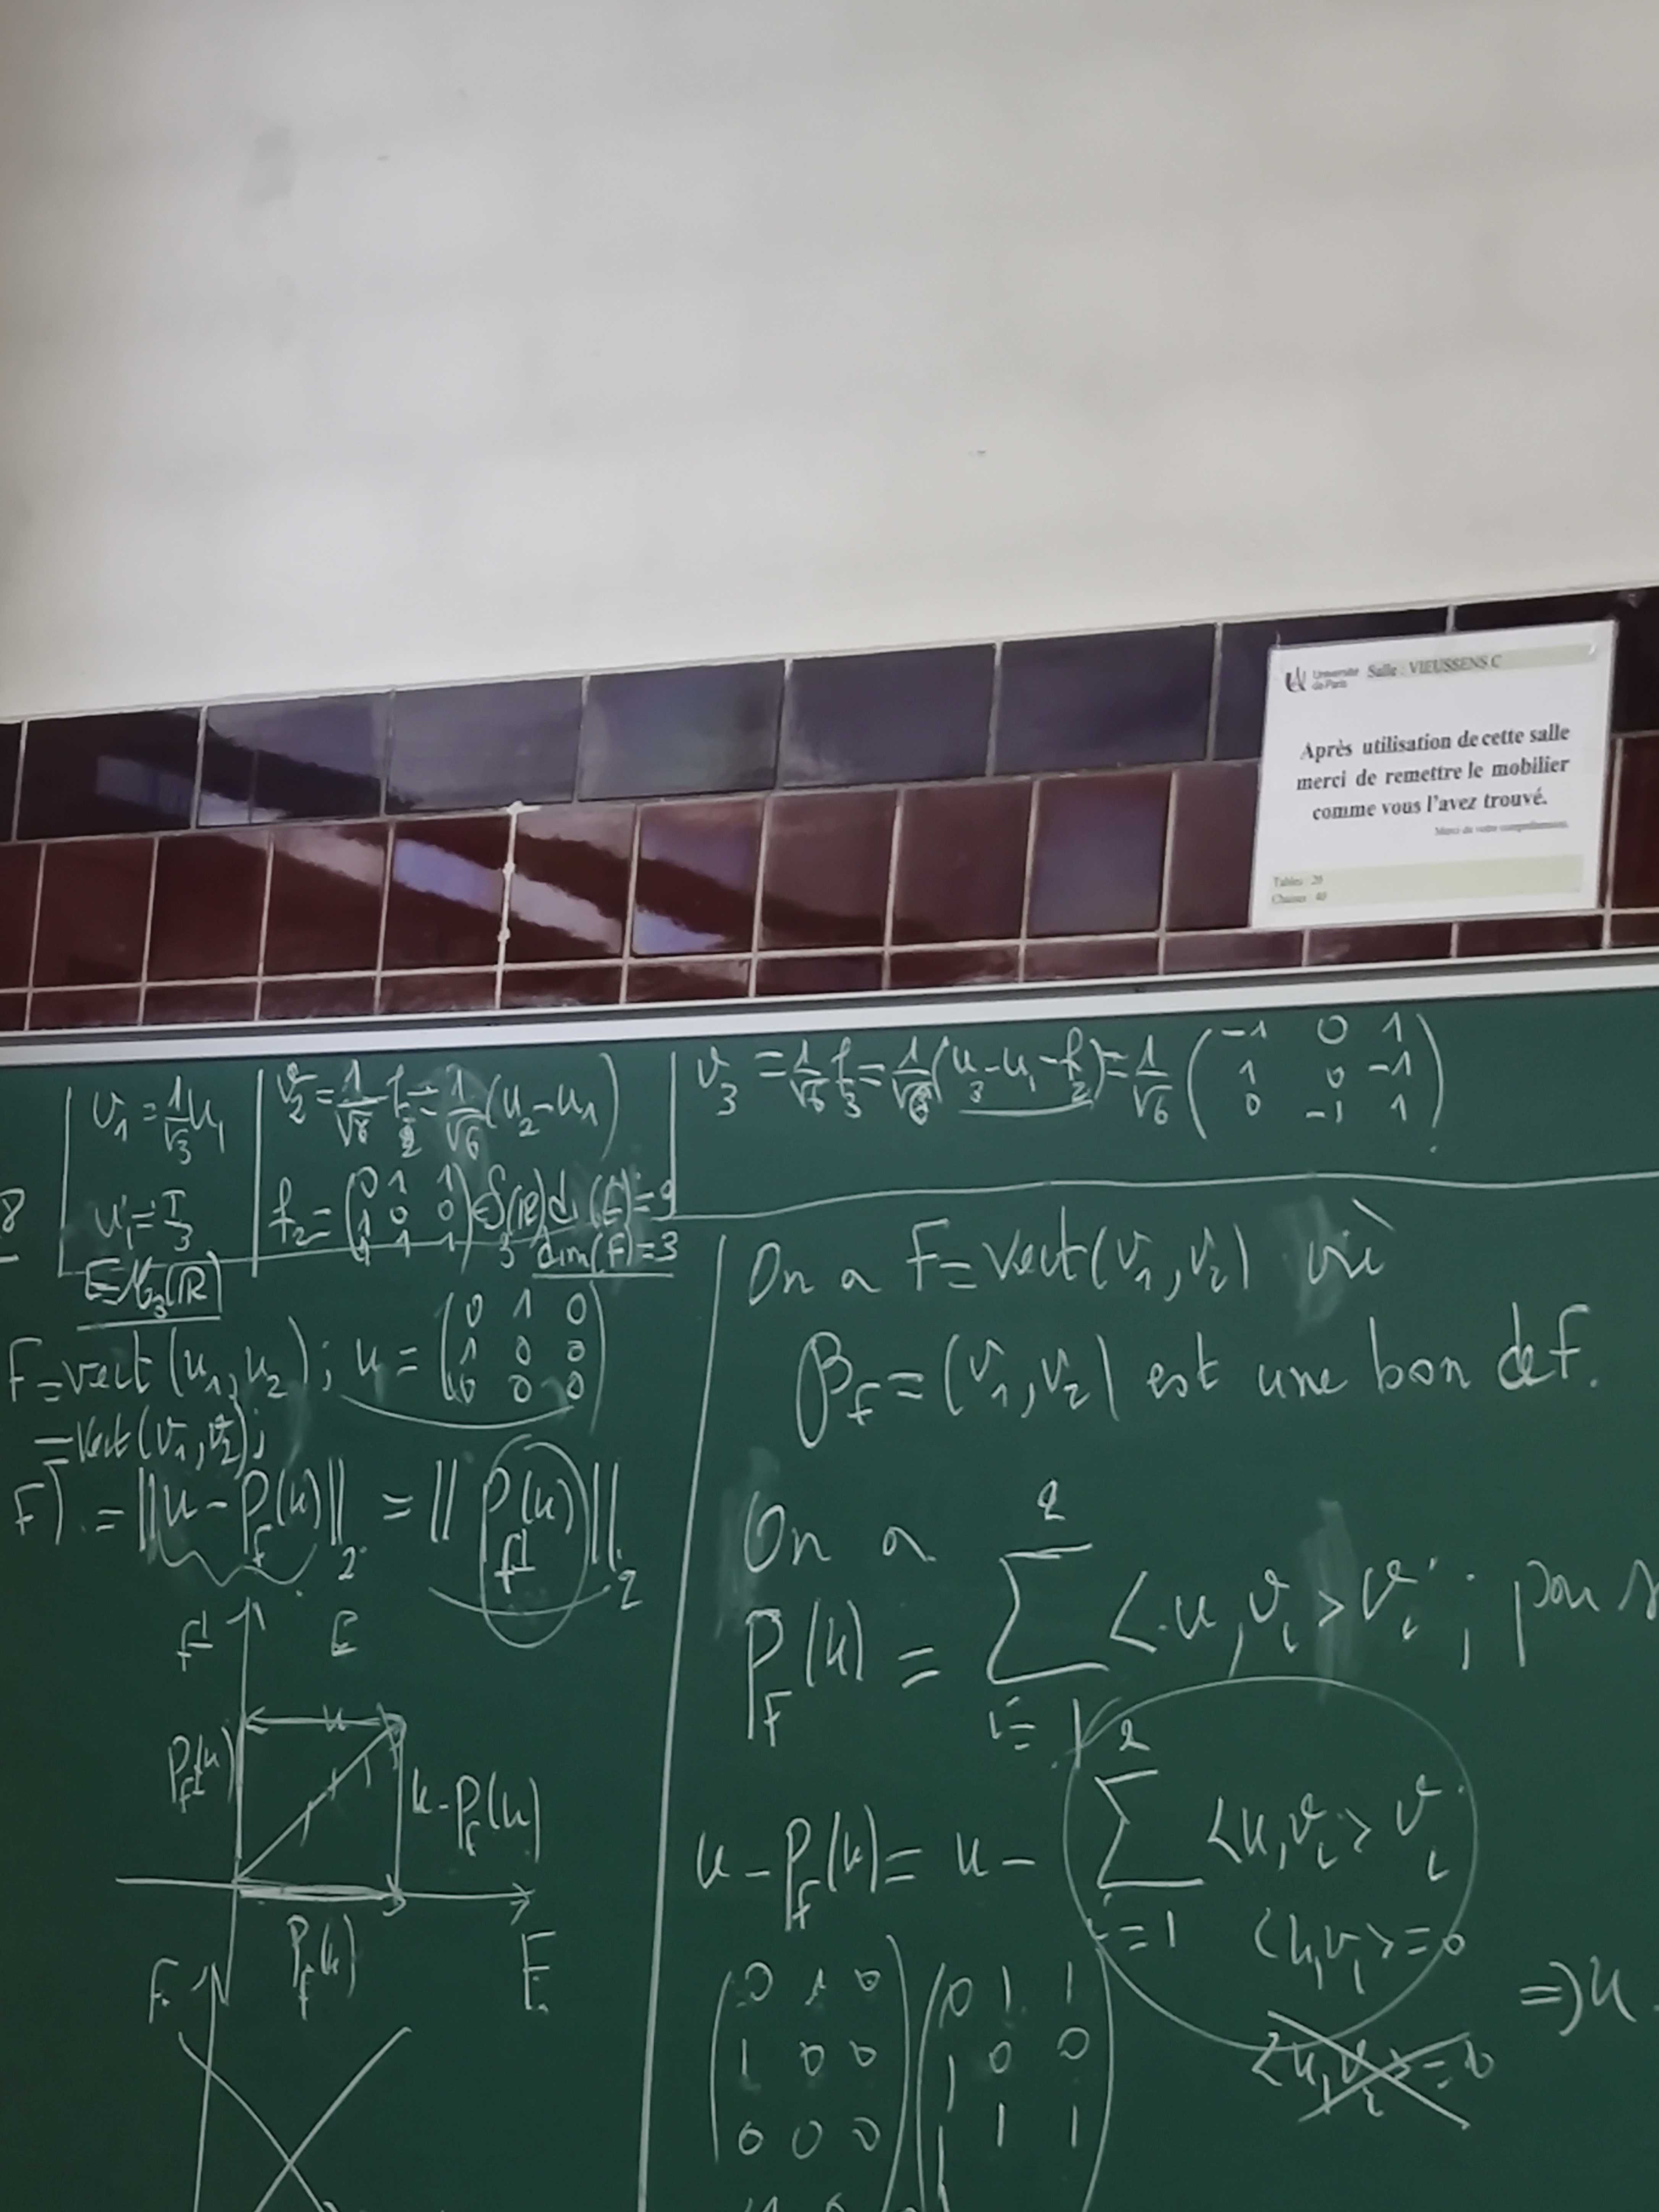 Université de Paris Salle : VIEUSSENS C
Après utilisation de cette salle
merci de remettre le mobilier
comme vous l'avez trouvé.
Merci de votre compréhension.
Tables : 20
Chaises : 40
v₁ = 1/√3 u₁
u₁ = I₃
E = M₃(R)
v₂ = 1/√6 f₂ = 1/√6 (u₂ - u₁)
f₂ = (0 1 1
1 0 0
1 1 1)
dim(F) = 3
v₃ = 1/√6 f₃ = 1/√6 (u₃ - u₁ - f₂) = 1/√6 (-1 0 1
1 0 -1
0 -1 1)
F = vect(u₁, u₂); u = (0 1 0
1 0 0
0 0 0)
= vect(v₁, v₂);
F) = ||u - P_F(u)||₂ = ||P_F⊥(u)||₂
F⊥ E
u
P_F⊥(u)
u - P_F(u)
P_F(u)
F
On a F = vect(v₁, v₂)
β_F = (v₁, v₂) est une bon de F.
On a
P_F(u) = Σ_{i=1}^{2} <u, v_i> v_i ; pour
u - P_F(u) = u - Σ_{i=1}^{2} <u, v_i> v_i
<u, v₁> = 0
=> u
<u, v₂> = 0
(0 1 0
1 0 0
0 0 0) (0 1 1
1 0 0
1 1 1)